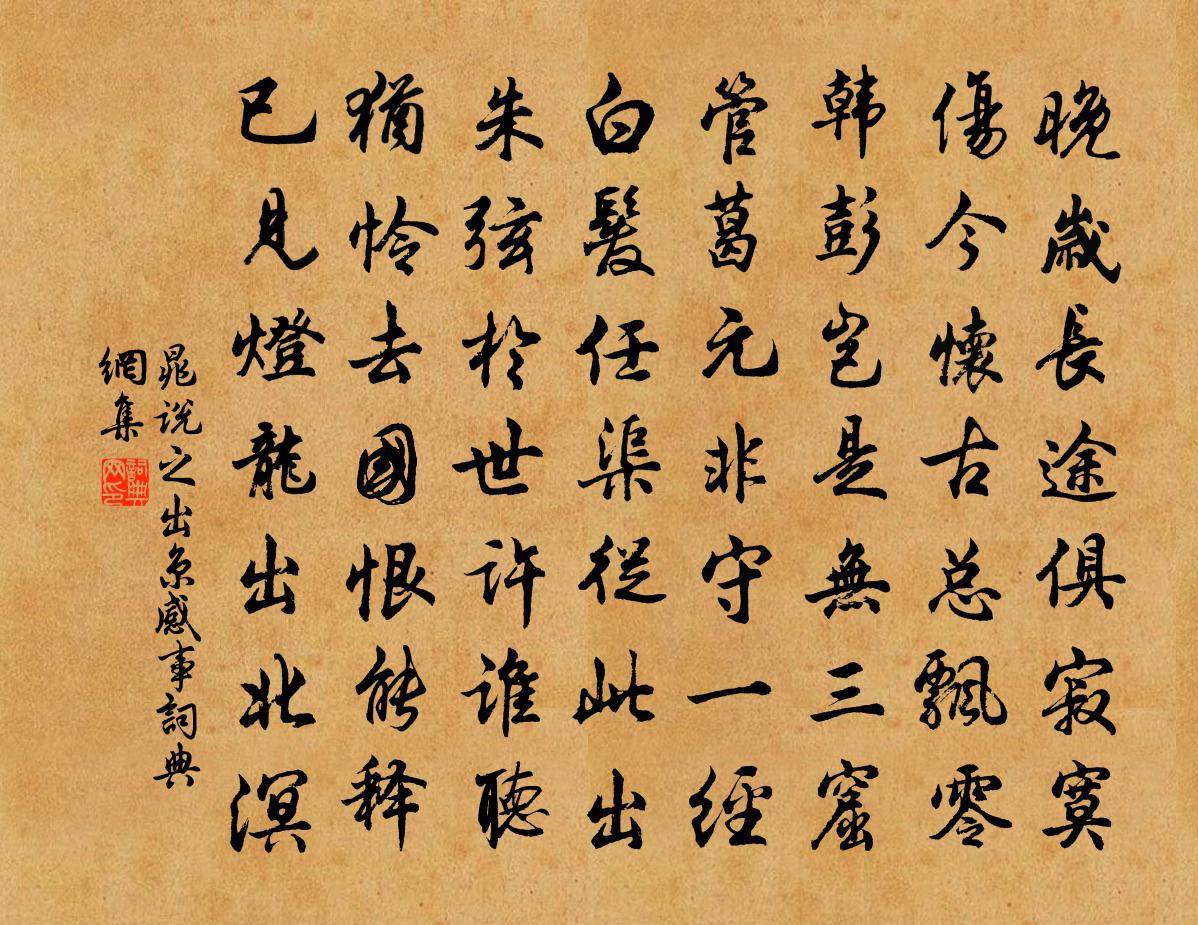 晚歲長途俱寂寞
傷今懷古总飄零
韩彭岂是無三窟
管葛元非守一經
白髮任渠從此出
朱弦於世許誰聽
猶怜去國恨能释
已見燈龍出北溟
晁説之出京感事詞典
網集
詞典
网印